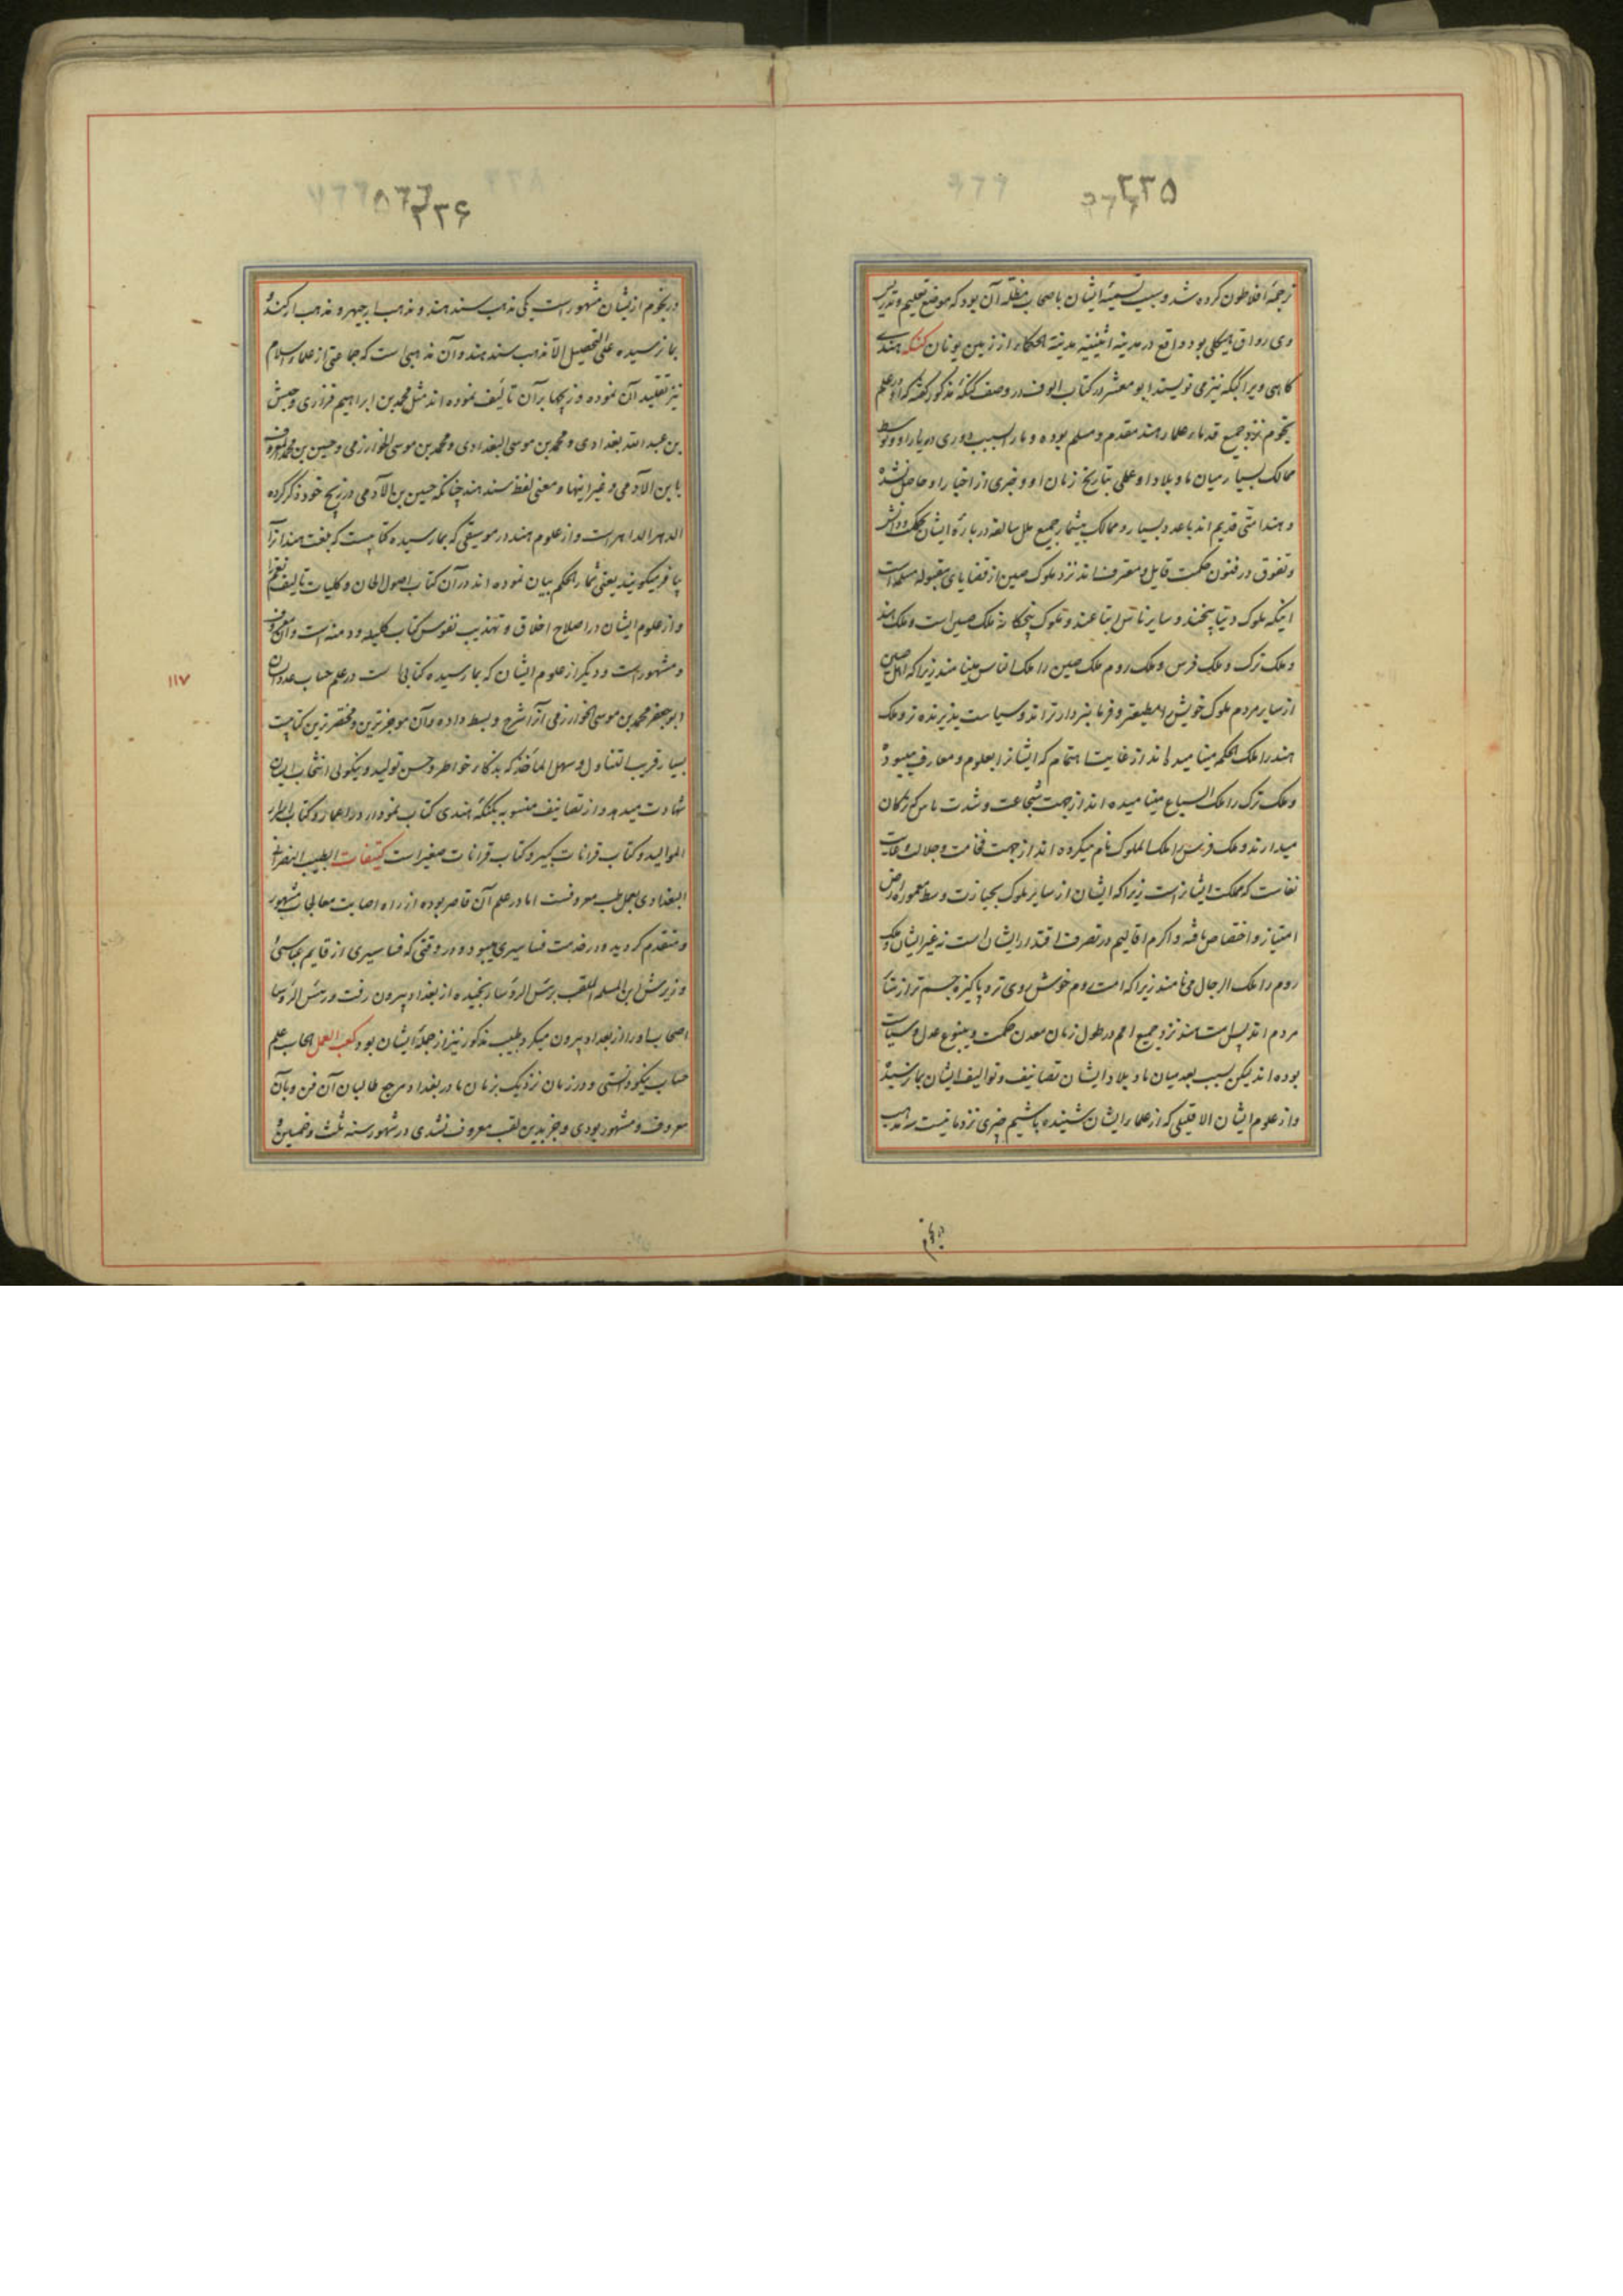 ۲۲۵
ترجمهٔ افلاطون کرده شد و سبب تسمیهٔ ایشان باصحاب مظله آن بود که موضع تعلیم و تدریس
وی رواق هیکلی بود واقع در مدینه اثینیه مدینة الحکماء از زمین یونان کنکه هندی
کاهی ویرا کنکه نیز می نویسند ابو معشر در کتاب الوف در وصف کنکهٔ مذکور گفته که او در علم
نجوم نزد جمیع قدماء علماء هند مقدم و مسلم بوده و ما را بسبب دوری دیار او و توسط
ممالک بسیار میان ما و بلاد او علمی بتاریخ زمان او و خبری از اخبار او حاصل نشده
و هند امتی قدیم اند با عدد بسیار و ممالک بیشمار جمیع ملل سالفه در بارهٔ ایشان بحکمت و دانش
و تفوق در فنون حکمت قایل و معترف اند نزد ملوک صین از قضایای مقبوله مسلمه است
اینکه ملوک دنیا پنجند و سایر ناس اتباعند و ملوک پنجکانه ملک صین است و ملک هند
و ملک ترک و ملک فرس و ملک روم ملک صین را ملک الناس مینامند زیرا که اهل صین
از سایر مردم ملوک خویش را مطیعتر و فرمانبردارتر اند و سیاست پذیرنده تر و ملک
هند را ملک الحکم مینامیده اند از غایت اهتمام که ایشانرا بعلوم و معارف میبود
و ملک ترک را ملک السباع مینامیده اند از جهت شجاعت و شدت باس که ترکان
میدارند و ملک فرس را ملک الملوک نام میکرده اند از جهت فخامت و جلالت و غایت
نفاست که مملکت ایشانراست زیرا که ایشان از سایر ملوک بحیازت وسط معمورهٔ ارض
امتیاز و اختصاص یافته و اکرم اقالیم در تصرف اقتدار ایشان است نه غیر ایشان و ملک
روم را ملک الرجال می نامند زیرا که امت روم خوش روی تر و پاکیزه جسم تر از سایر
مردم اند پس امت هند نزد جمیع امم در طول زمان معدن حکمت و ینبوع عدل و سیاست
بوده اند لیکن بسبب بعد میان ما و بلاد ایشان تصانیف و توالیف ایشان بما نرسید
و از علوم ایشان الا قلیلی که از علماء ایشان شنیده باشیم چیزی نزد ما نیست سه مذهب
در نجوم
۲۲۶
در نجوم از ایشان مشهور است یکی مذهب سند هند و مذهب ارجبهر و مذهب ارکند
بما نرسیده علی التحصیل الا مذهب سند هند و آن مذهبی است که جماعتی از علماء اسلام
نیز تقلید آن نموده و زیجها بر آن تالیف نموده اند مثل محمد بن ابراهیم فزاری و حبش
بن عبدالله بغدادی و محمد بن موسی البغدادی و محمد بن موسی الخوارزمی و حسین بن محمد المعروف
بابن الآدمی و غیر اینها و معنی لفظ سند هند چنانکه حسین بن الآدمی در زیج خود ذکر کرده
الدهر الداهر است و از علوم هند در موسیقی که بما رسیده کتابیست که بلغت هند آنرا
یافر میکویند یعنی ثمار الحکم بیان نموده اند در آن کتاب اصول الحان و کلیات تالیف نغم را
و از علوم ایشان در اصلاح اخلاق و تهذیب نفوس کتاب کلیله و دمنه است و آن معروف
و مشهور است و دیگر از علوم ایشان که بما رسیده کتابی است در علم حساب عدد آن
ابو جعفر محمد بن موسی الخوارزمی آنرا شرح و بسط داده و آن موجزترین و مختصرترین کتابیست
بسیار قریب التناول و سهل الماخذ که بذکاء خواطر و حسن تولید و نیکوئی انتخاب ایشان
شهادت میدهد و از تصانیف منسوبه بکنکهٔ هندی کتاب نمودار در اعمار و کتاب اسرار
الموالید و کتاب قرانات کبیر و کتاب قرانات صغیر است کتیفات الطبیب النصرانی
البغدادی بعمل طب معروفست اما در علم آن قاصر بوده از راه اصابت معالجات مشهور
و متقدم گردید و در خدمت فساسیری میبود و در وقتی که فساسیری از قایم عباسی
و وزیرش ابن المسلمه الملقب برئیس الرؤسا رنجیده از بغداد بیرون رفت و رئیس الرؤسا
اصحاب او را از بغداد بیرون میکرد طبیب مذکور نیز از جملهٔ ایشان بود کعب العمل الحاسب علم
حساب نیکو دانستی و در زمان نزدیک بزمان ما در بغداد مرجع طالبان آن فن و بآن
معروف و مشهور بودی و جز بدین لقب معروف نشدی در شهور سنه ثلث و خمسین و
۱۱۷